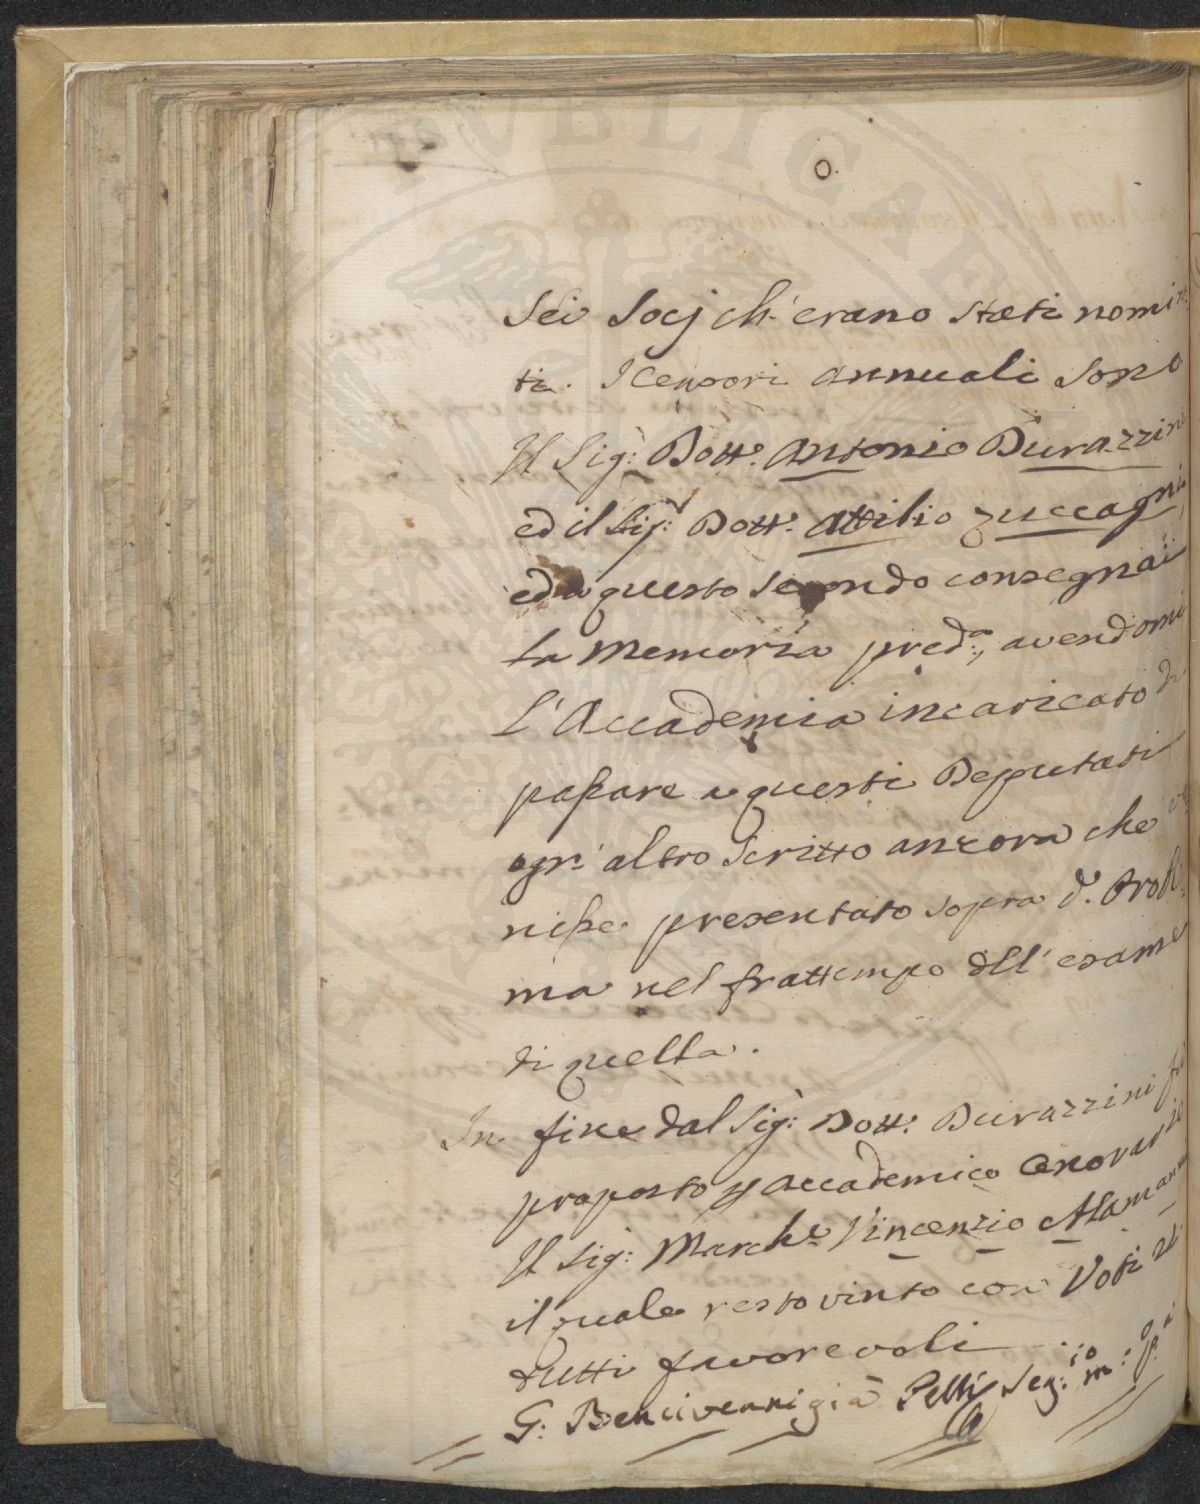 O.
Sei Socj ch'erano stati nomi
ti. I Censori annuali sono
Il Sig: Dott. Antonio Durazzini
ed il Sig: Dott. Attilio Zuccagni
ed a questo secondo consegnai
la Memoria pred.a, avendomi
l'Accademia incaricato di
passare a questi Deputati
ogn'altro Scritto ancora che
nisse presentato sopra d. Probl
ma nel frattempo dell'esame
di quella.
In fine dal Sig: Dott. Durazzini fu
proposto p accademico Onorario
Il Sig: March.e Vincenzio Alamanni
il quale restò vinto con Voti 21.
tutti favorevoli
G. Bencivenni già Pelli Seg.rio m: p.a